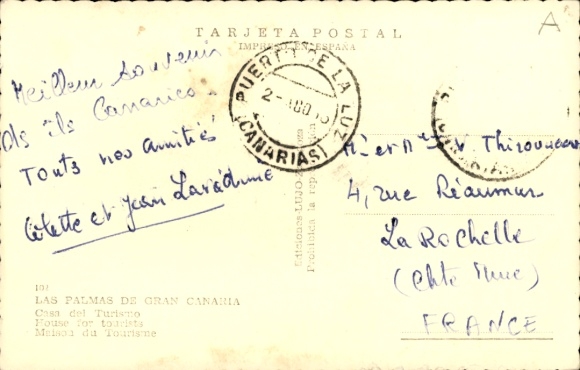 A
TARJETA POSTAL
IMPRESO EN ESPAÑA
Meilleur souvenir
des îls Canaries.
Touts nos amitiés
Colette et Jean
PUERTO DE LA LUZ
2-AGO
(CANARIAS)
Ediciones
Prohibida la rep
Mr et
4, rue Réaumur
La Rochelle
(Chte Mme)
FRANCE
101
LAS PALMAS DE GRAN CANARIA
Casa del Turismo
House for tourists
Maison du Tourisme